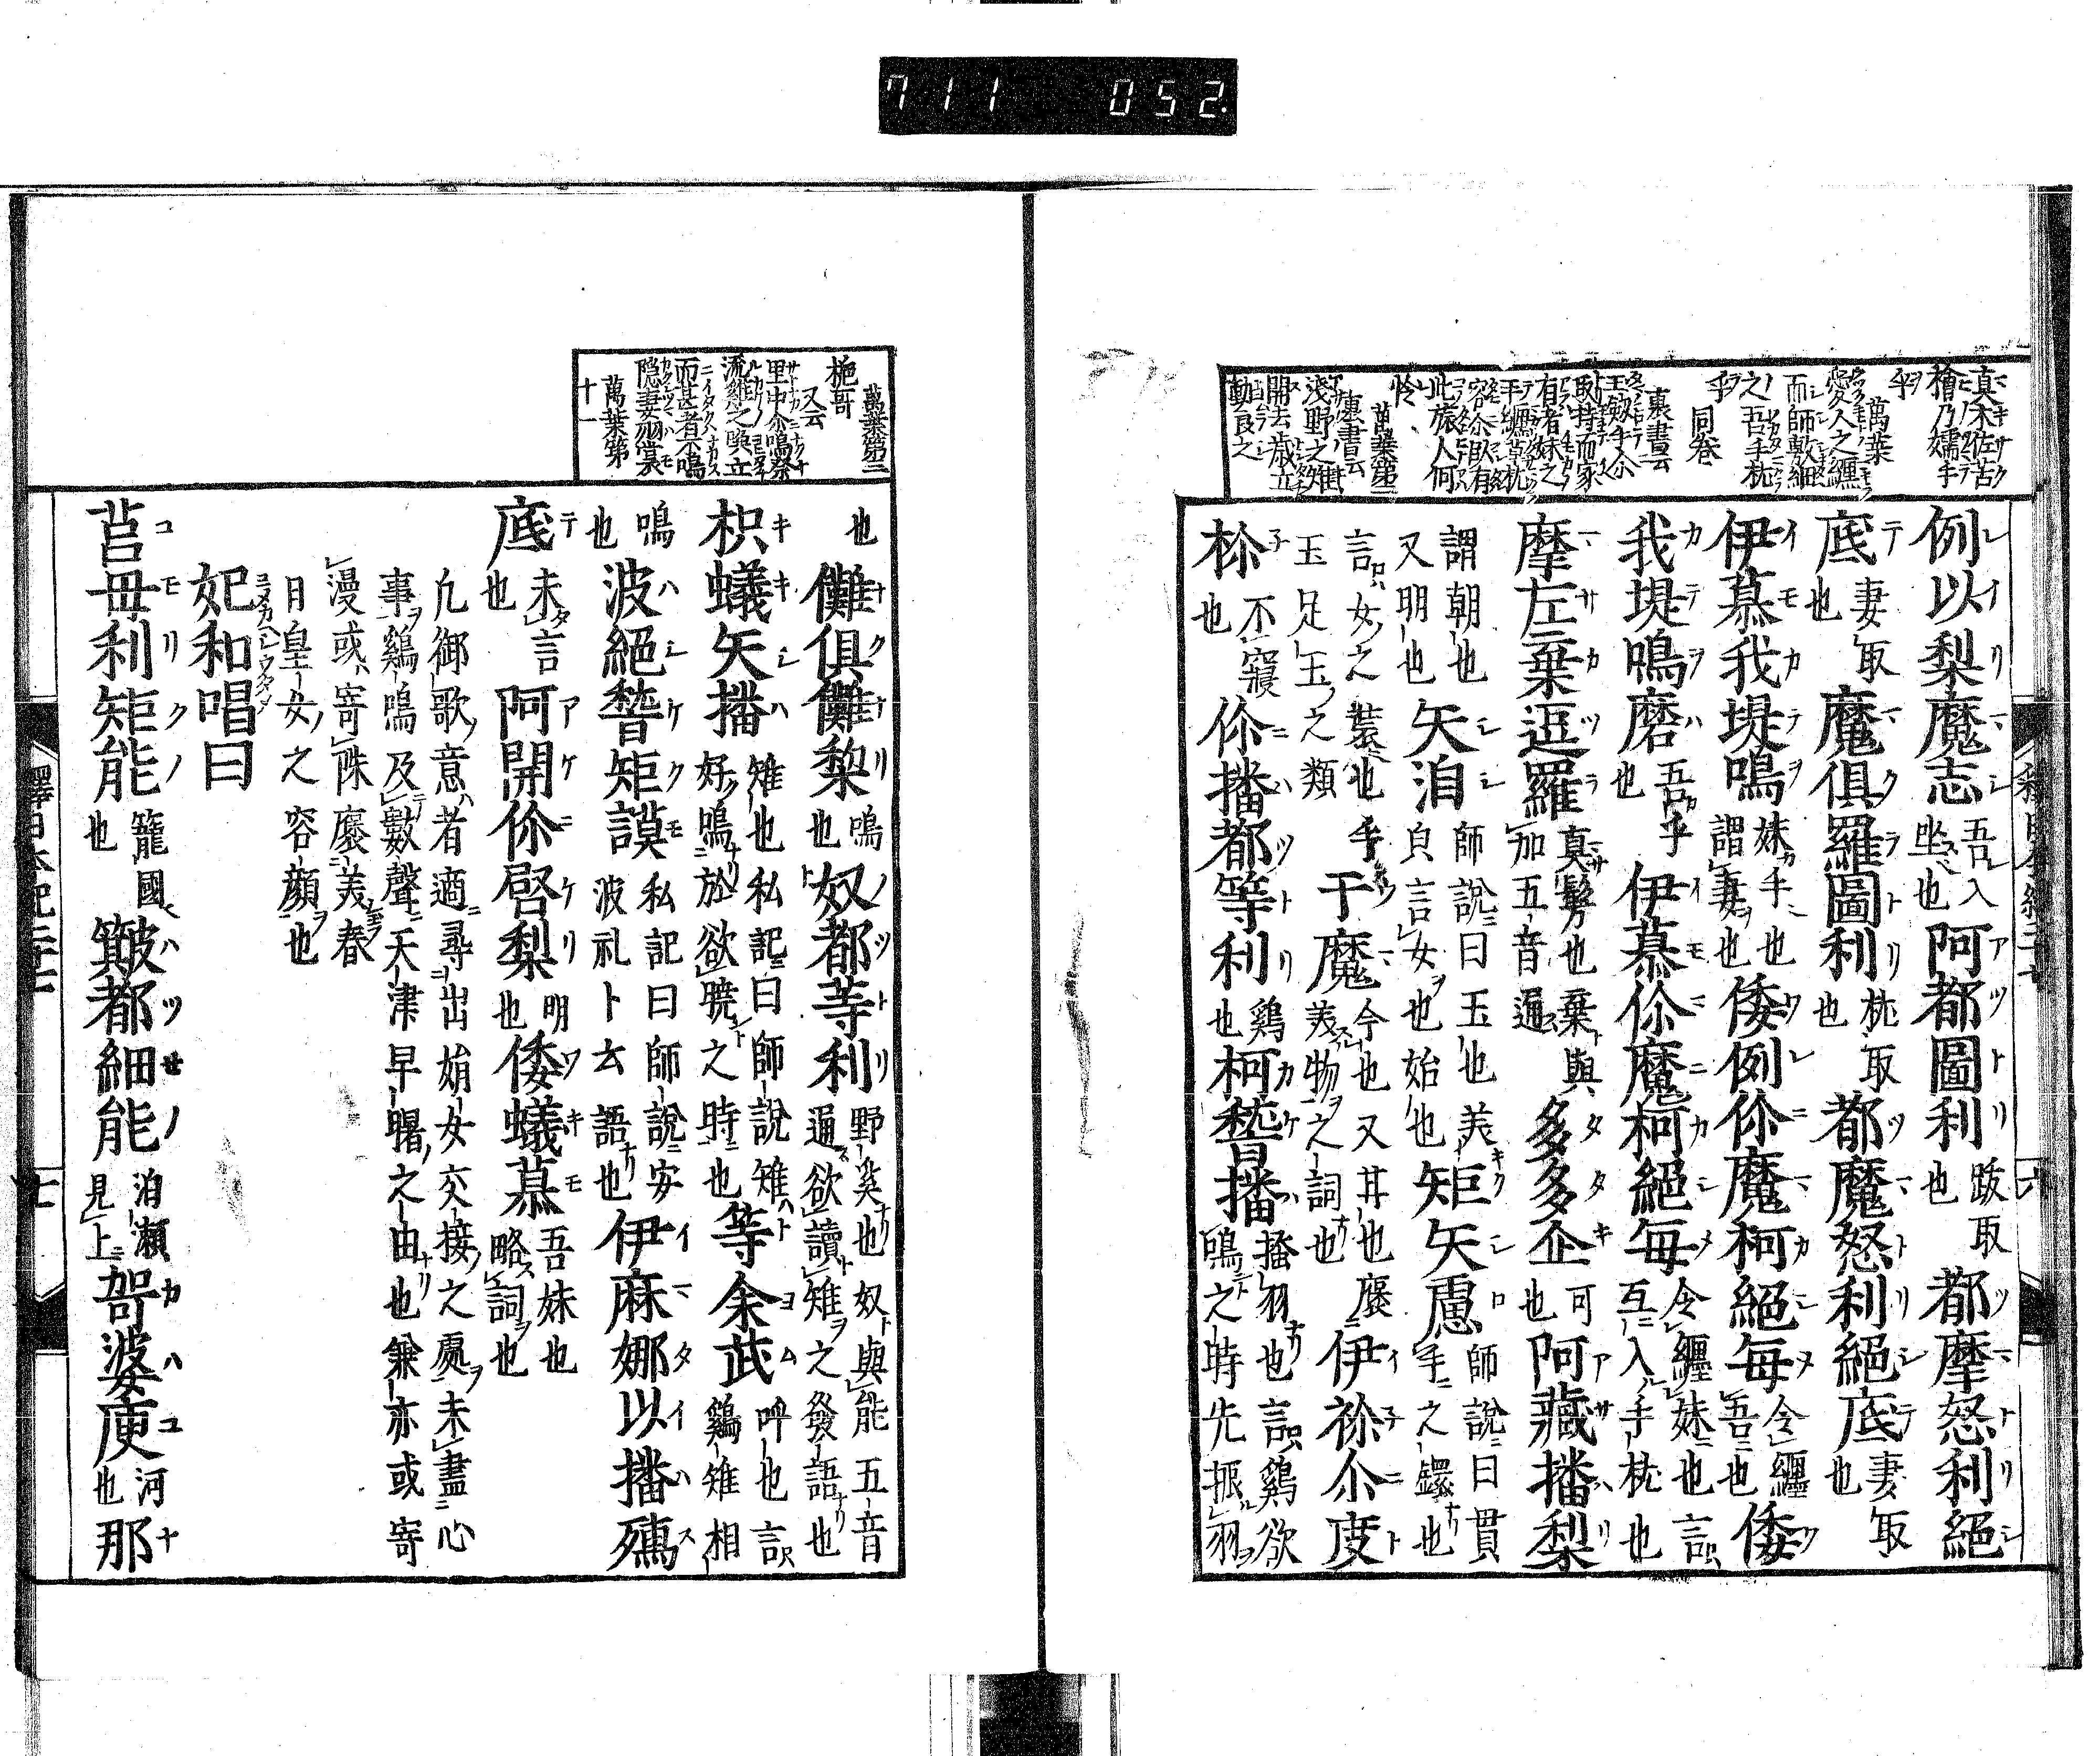 711 052.
真木佐古
檜乃嬬手
乎
萬葉
愛人之纏
而師敷細
之吾手枕
乎 同卷
裏書云
玉釼手尒
取持而家
有者妹之
手纏草枕
客尒臥有
此旅人何
怜
萬葉第三
裏書云
淺野之雉
開去歳立
動良之
例以梨魔志 吾入坐也 阿都圖利 跋取也 都摩怒利絕
底 妻取也 魔俱羅圖利 枕取也 都魔怒利絕底 妻取也
伊慕我堤鳴 妹手也謂妻也 倭例尒魔柯絕每 令纏吾也 倭
我堤鳴磨 吾手乎也 伊慕尒魔柯絕每 令纏妹也言互入手枕也
摩左棄逗羅 真鬘也棄與加五音通 多多企 可也 阿藏播梨
謂朝也又明也 矢洎矩矢慮 師說曰玉也美貞言女也始也 師說曰貫手之鐶也
言女之裝也手玉足玉之類 于魔 今也又甘也褒美物之詞也 伊祢尒度
柹 不寢也 尒播都等利 鷄也 柯稽播 搔羽也言鷄欲鳴之時先振羽
釋日本紀二十七
六
萬葉第二
挽哥
又云
里中尒鳴奈
流雞之喚立
而甚者不鳴
隠妻羽裳
萬葉第
十一
也 儺俱儺黎 鳴也 奴都等利 野奚也奴與能五音通欲讀雉之發語也
枳蟻矢播 雉也私記曰師說雉好鳴於欲曉之時也 等余武 呼也言鷄雉相
鳴也 波絕稽矩謨 私記曰師說安波礼卜云語也 伊麻娜以播殦
底 未言也 阿開尒啓梨 明也 倭蟻慕 吾妹也略詞也
凢御歌意者適尋出娋女交接之處未盡心
事鷄鳴及數聲天津早曙之由也兼亦或寄
漫或寄䧺褒美春
日皇女之容顔也
妃和唱曰
莒毋利矩能 籠國也 簸都細能 泊瀨見上 哿婆庾 河也 那
釋日本紀二十七
七